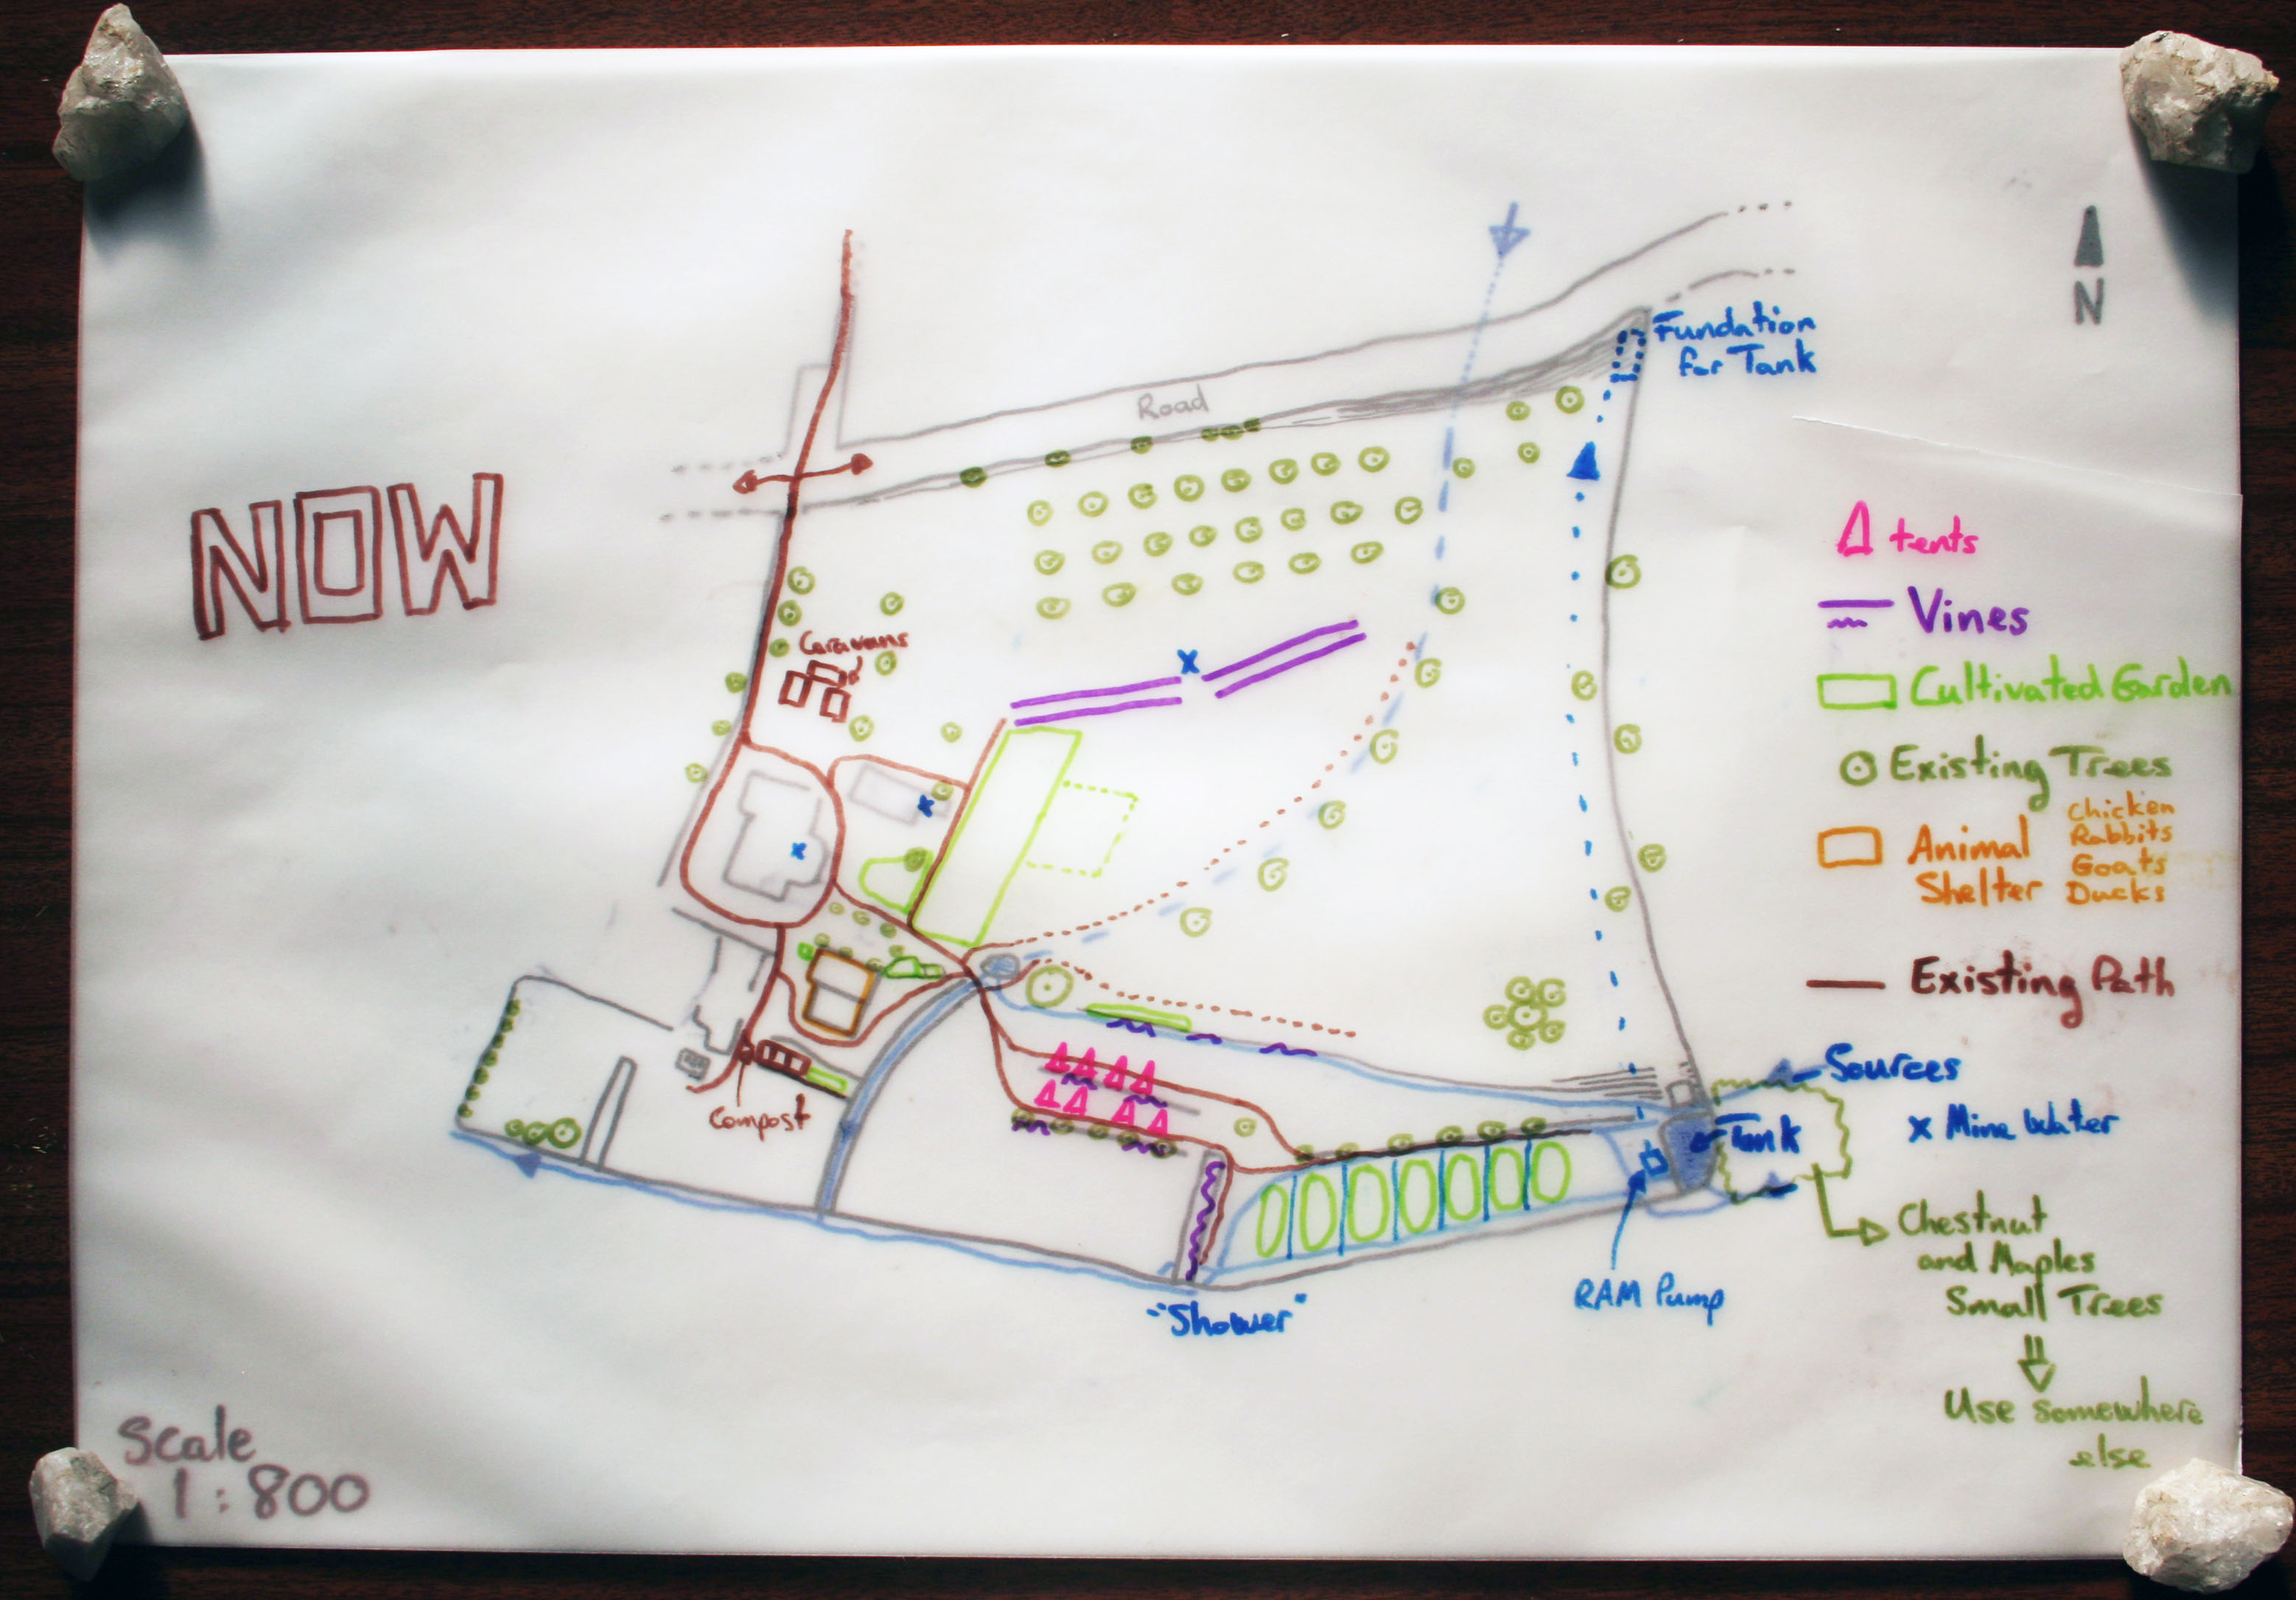 NOW
Road
N
Fundation
for Tank
Caravans
Compost
"Shower"
RAM Pump
Tank
tents
Vines
Cultivated Garden
Existing Trees
Animal
Shelter
Chicken
Rabbits
Goats
Ducks
Existing Path
Sources
x Mine Water
Chestnut
and Maples
Small Trees
Use somewhere
else
Scale
1:800